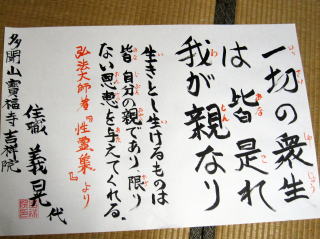 一切の衆生
は皆是れ
我が親なり
生きとし生けるものは
皆自分の親であり限り
ない恩恵を与えてくれる。
弘法大師著『性霊集』より
多聞山實福寺吉祥院
住職 義晃代